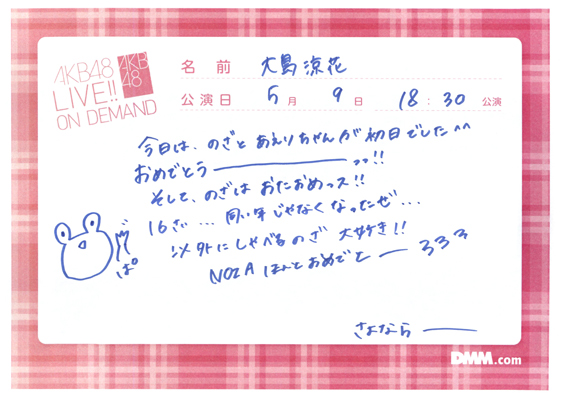 AKB48
LIVE!!
ON DEMAND
AKB
48
名前 大島涼花
公演日 5月 9日 18:30 公演
今日は、のざとあえりちゃんが初日でした^^
おめでとう――――っっ!!
そして、のざはおたおめっス!!
16さい... 同い年じゃなくなったぜ...
以外にしゃべるのざ 大好き!!
NOZA ほんとおめでと―ろろろ
ぱ
さよなら――
DMM.com